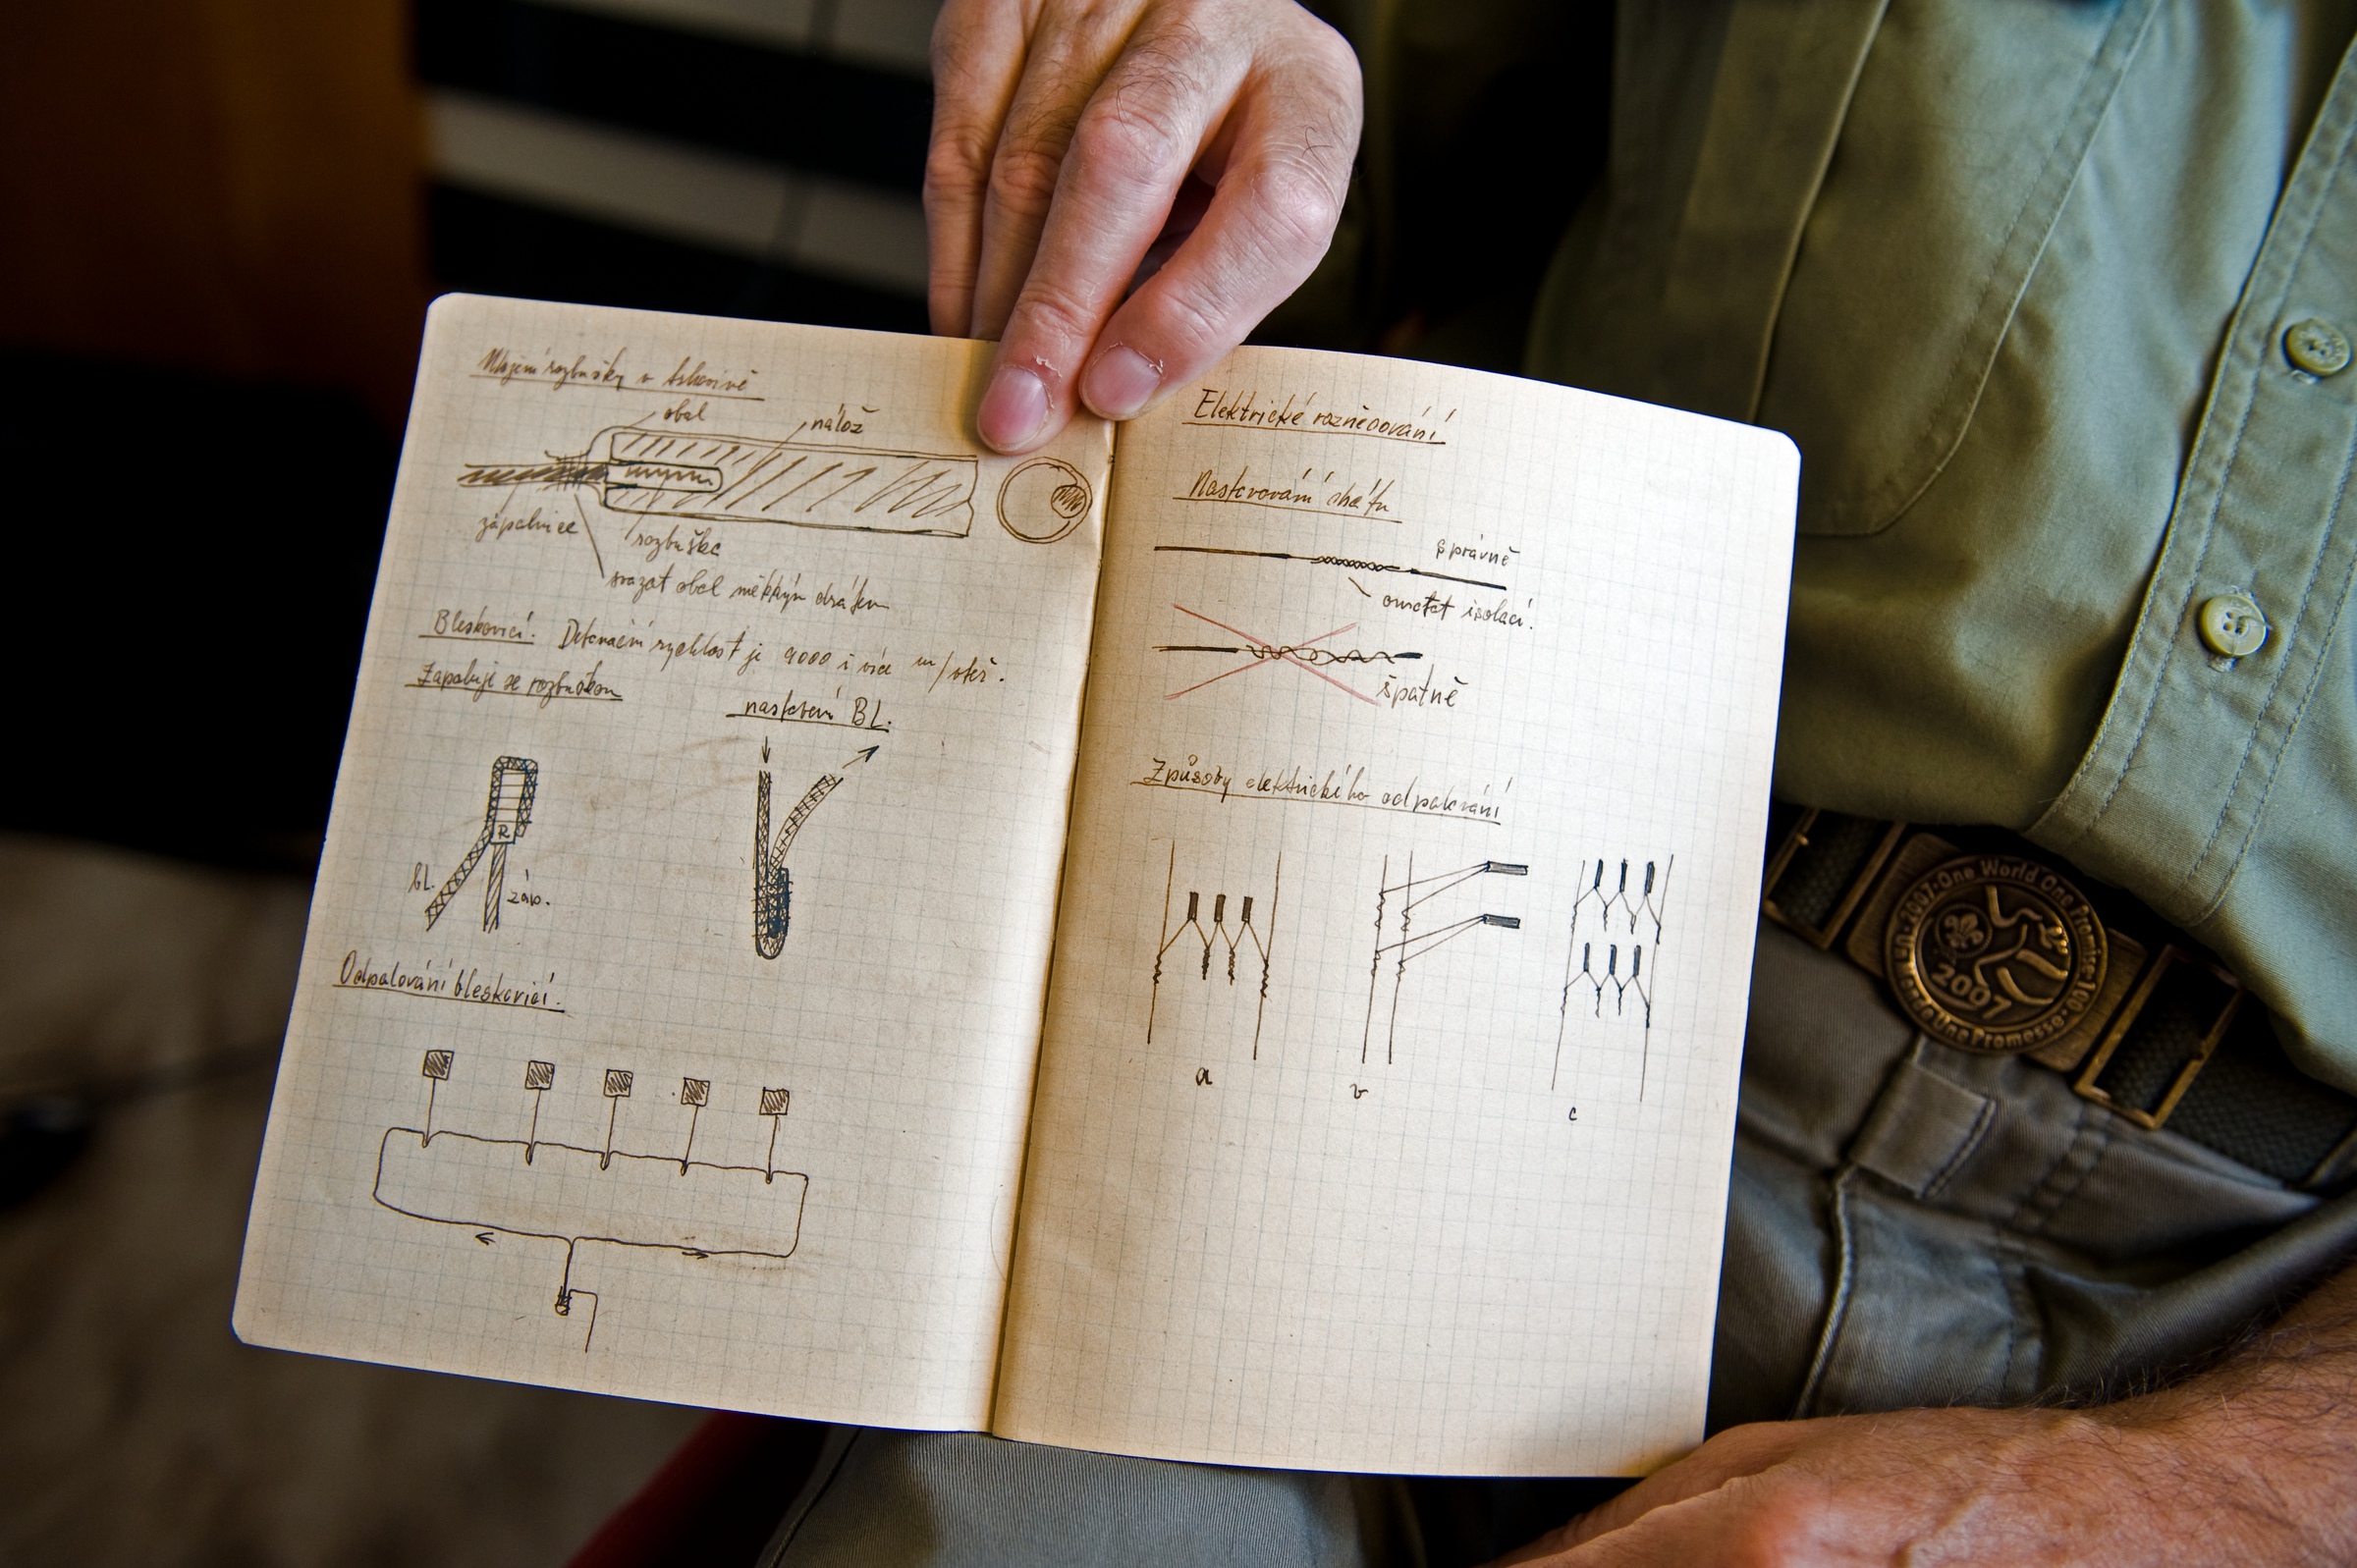 Uložení rozbušky v trhavině
obal
nálož
zápalnice
rozbuška
svázat obal měkkým drátem
Bleskovicí. Detonační rychlost je 9000 i více m/vteř.
Zapaluje se rozbuškou
nastavení BL.
R
bl.
záp.
Odpalování bleskovicí.
Elektrické rozněcování
Nastavování drátu
správně
omotat isolací.
špatně
Způsoby elektrického odpalování
a
b
c
2007·One World One Promise·100·
Un Monde Une Promesse
2007